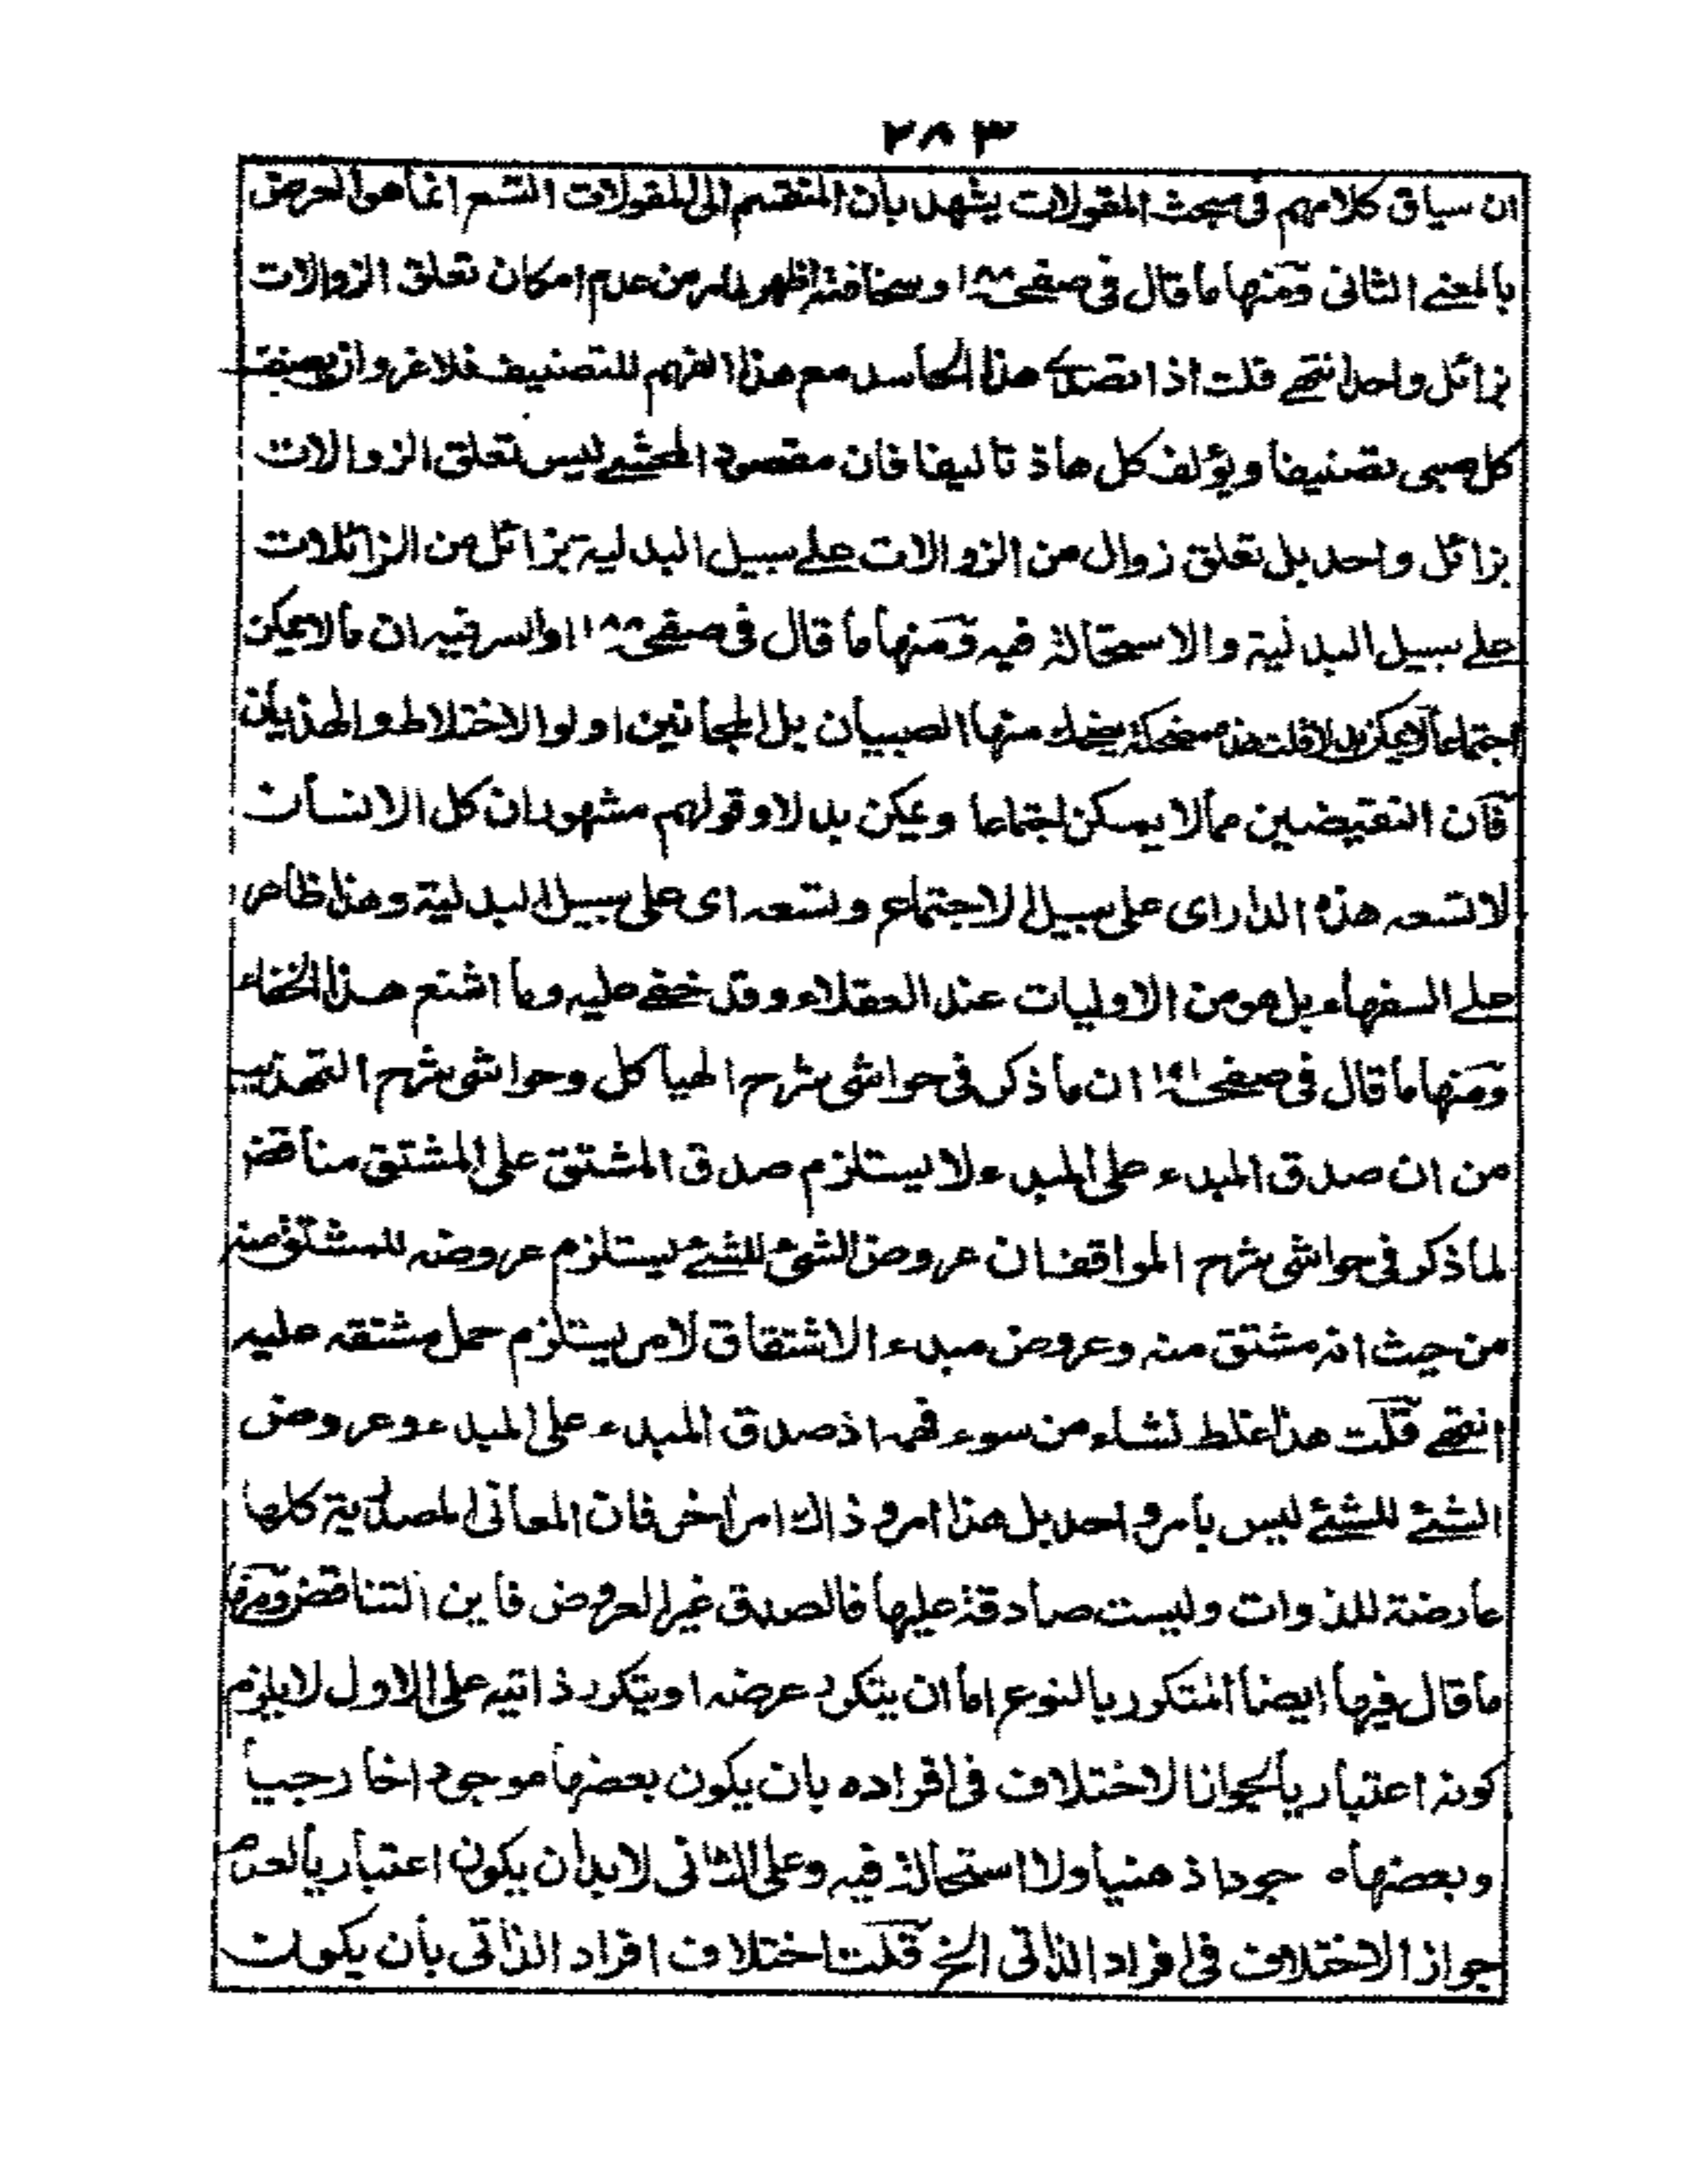 ٢٨٣
ان سياق كلامهم فى مبحث المقولات يشهد بان المنقسم الى المقولات التسع انما هو العرض
بالمعنے الثانى ومنها ما قال فى صفحة ١٨٨ وسخافته اظهر لما مر من عدم امكان تعلق الزوالات
بزائل واحد انتهے قلت اذا تصدى هذا الحاسد مع هذا الفهم للتصنيف فلا غرو ان يصنف
كل صبى تصنيفا ويؤلف كل هاذ تاليفا فان مقصود المحشے ليس تعلق الزوالات
بزائل واحد بل تعلق زوال من الزوالات علے سبيل البدلية بزائل من الزائلات
علے سبيل البدلية والاستحالة فيه ومنها ما قال فى صفحة ١٨٨ والسر فيه ان ما لا يمكن
اجتماعا لا يمكن بدلا قلت هذا مضحكة يضحك منها الصبيان بل المجانين اولوا الاختلاط والهذيان
فان النقيضين مما لا يمكن اجتماعا ويمكن بدلا وقولهم مشهور ان كل الانسان
لا تسعه هذه الدار اى على سبيل الاجتماع وتسعه اى على سبيل البدلية وهذا ظاهر
علے السفهاء بل هو من الاوليات عند العقلاء وقد خفے عليه وما اشنع هذا الخفاء
ومنها ما قال فى صفحة ١٩١ ان ما ذكر فى حواشى شرح الهياكل وحواشى شرح التهذيب
من ان صدق المبدء على المبدء لا يستلزم صدق المشتق على المشتق مناقض
لما ذكر فى حواشى شرح المواقف ان عروض الشئ للشئے يستلزم عروضه للمشتق منه
من حيث انه مشتق منه وعروض مبدء الاشتقاق لامر يستلزم حمل مشتقه عليه
انتهے قلت هذا غلط نشاء من سوء فهمه اذ صدق المبدء على المبدء وعروض
الشئے للشئے ليس بامر واحد بل هذا امر وذاك امر اخر فان المعانى المصدرية كلها
عارضة للذوات وليست صادقة عليها فالصدق غير العروض فاين التناقض ومنها
ما قال فيها ايضا المتكرر بالنوع اما ان يتكرر عرضه او يتكرر ذاتيه على الاول لا يلزم
كونه اعتباريا لجواز الاختلاف فى افراده بان يكون بعضها موجودا خارجيا
وبعضها موجودا ذهنيا ولا استحالة فيه وعلى الثانى لابد ان يكون اعتباريا لعدم
جواز الاختلاف فى افراد الذاتى الخ قلت اختلاف افراد الذاتى بان يكون